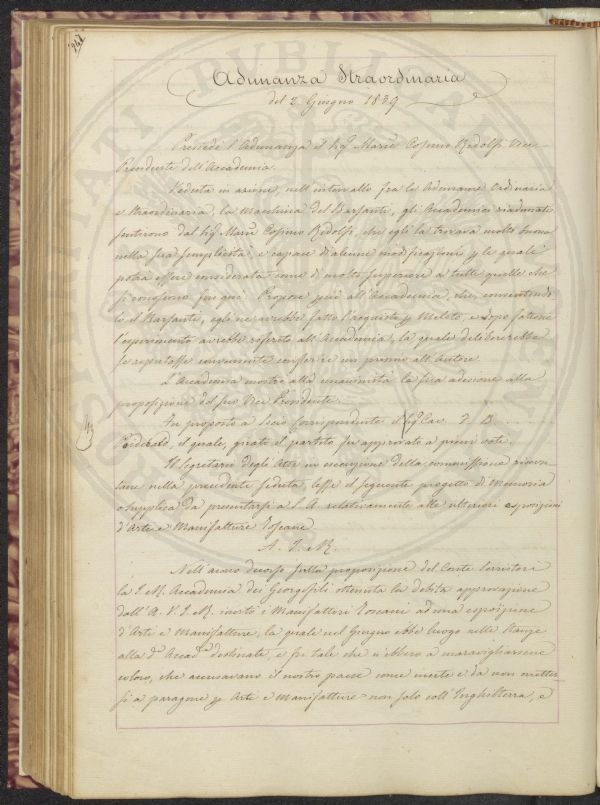 242
Adunanza Straordinaria
del 2. Giugno 1839
Presiede l'Adunanza il Sigr. March. Cosimo Ridolfi Vice-
Presidente dell'Accademia.
Veduta in azione, nell'intervallo fra le Adunanze Ordinaria
e Straordinaria, la Macchina del Barsanti, gli Accademici riadunati
sentirono dal Sigr. March. Cosimo Ridolfi, che egli la trovava molto buona
nella sua semplicità, e capace di alcune modificazioni p. le quali
potrà essere considerata come di molto superiore a tutte quelle che
si conoscono fin qui. Propone poi all'Accademia, che, consentendo-
lo il Barsanti, egli ne avrebbe fatto l'acquisto p. Meleto, e dopo fattone
l'esperimento avrebbe referito all'Accademia, la quale delibererebbe
se reputasse conveniente conferire un premio all'Autore.
L'Accademia mostrò alla unanimità la sua adesione alla
proposizione del suo Vice Presidente.
Fu proposto a Socio Corrispondente il Sigr. Cav. F. B.
il quale, girato il partito fu approvato a pieni voti.
Il Segretario degli Atti in esecuzione della commissione
nella precedente seduta, lesse il seguente progetto di Memoria
o supplica da presentarsi a S. A. relativamente alle ulteriori esposizioni
d'Arti e Manifatture Toscane
A. I. e R.
Nell'anno decorso sulla proposizione del Conte Serristori
la I. e R. Accademia dei Georgofili ottenuta la debita approvazione
dall'A. V. I. e R. invitò i Manifattori Toscani ad una esposizione
d'Arti e Manifatture, la quale nel Giugno ebbe luogo nelle Stanze
alla da. Accada. destinate, e fu tale che n'ebbero a maravigliarsene
coloro, che accusavano il nostro paese come inerte e da non metter-
si a paragone p. Arti e Manifatture non solo coll'Inghilterra, e